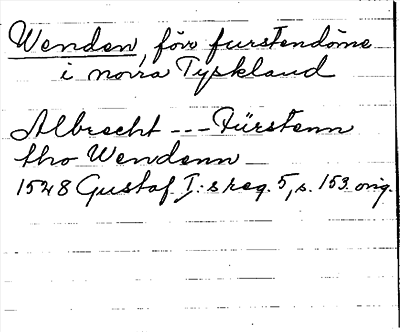 Wenden, förr furstendöme
i norra Tyskland
Albrecht --- Fürstenn
tho Wendenn
1548 Gustaf I:s reg. 5, s. 153. orig.